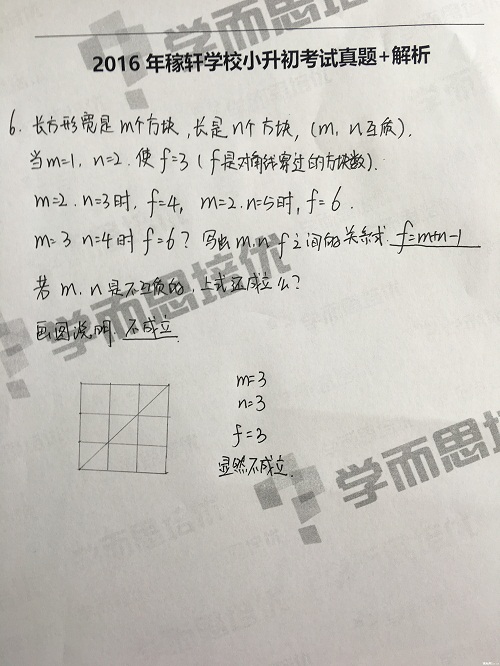 2016 年稼轩学校小升初考试真题+解析
6. 长方形宽是 m个方块,长是 n个方块, (m, n互质).
当m=1, n=2. 使 f=3 (f是对角线穿过的方块数).
m=2. n=3时. f=4, m=2. n=5时, f=6.
m=3 n=4时 f=6? 写出 m.n f之间的关系式. f=m+n-1
若 m. n是不互质的. 上式还成立么?
画图说明. 不成立
m=3
n=3
f=3
显然不成立.
学而思培优
学而思培优
学而思培优